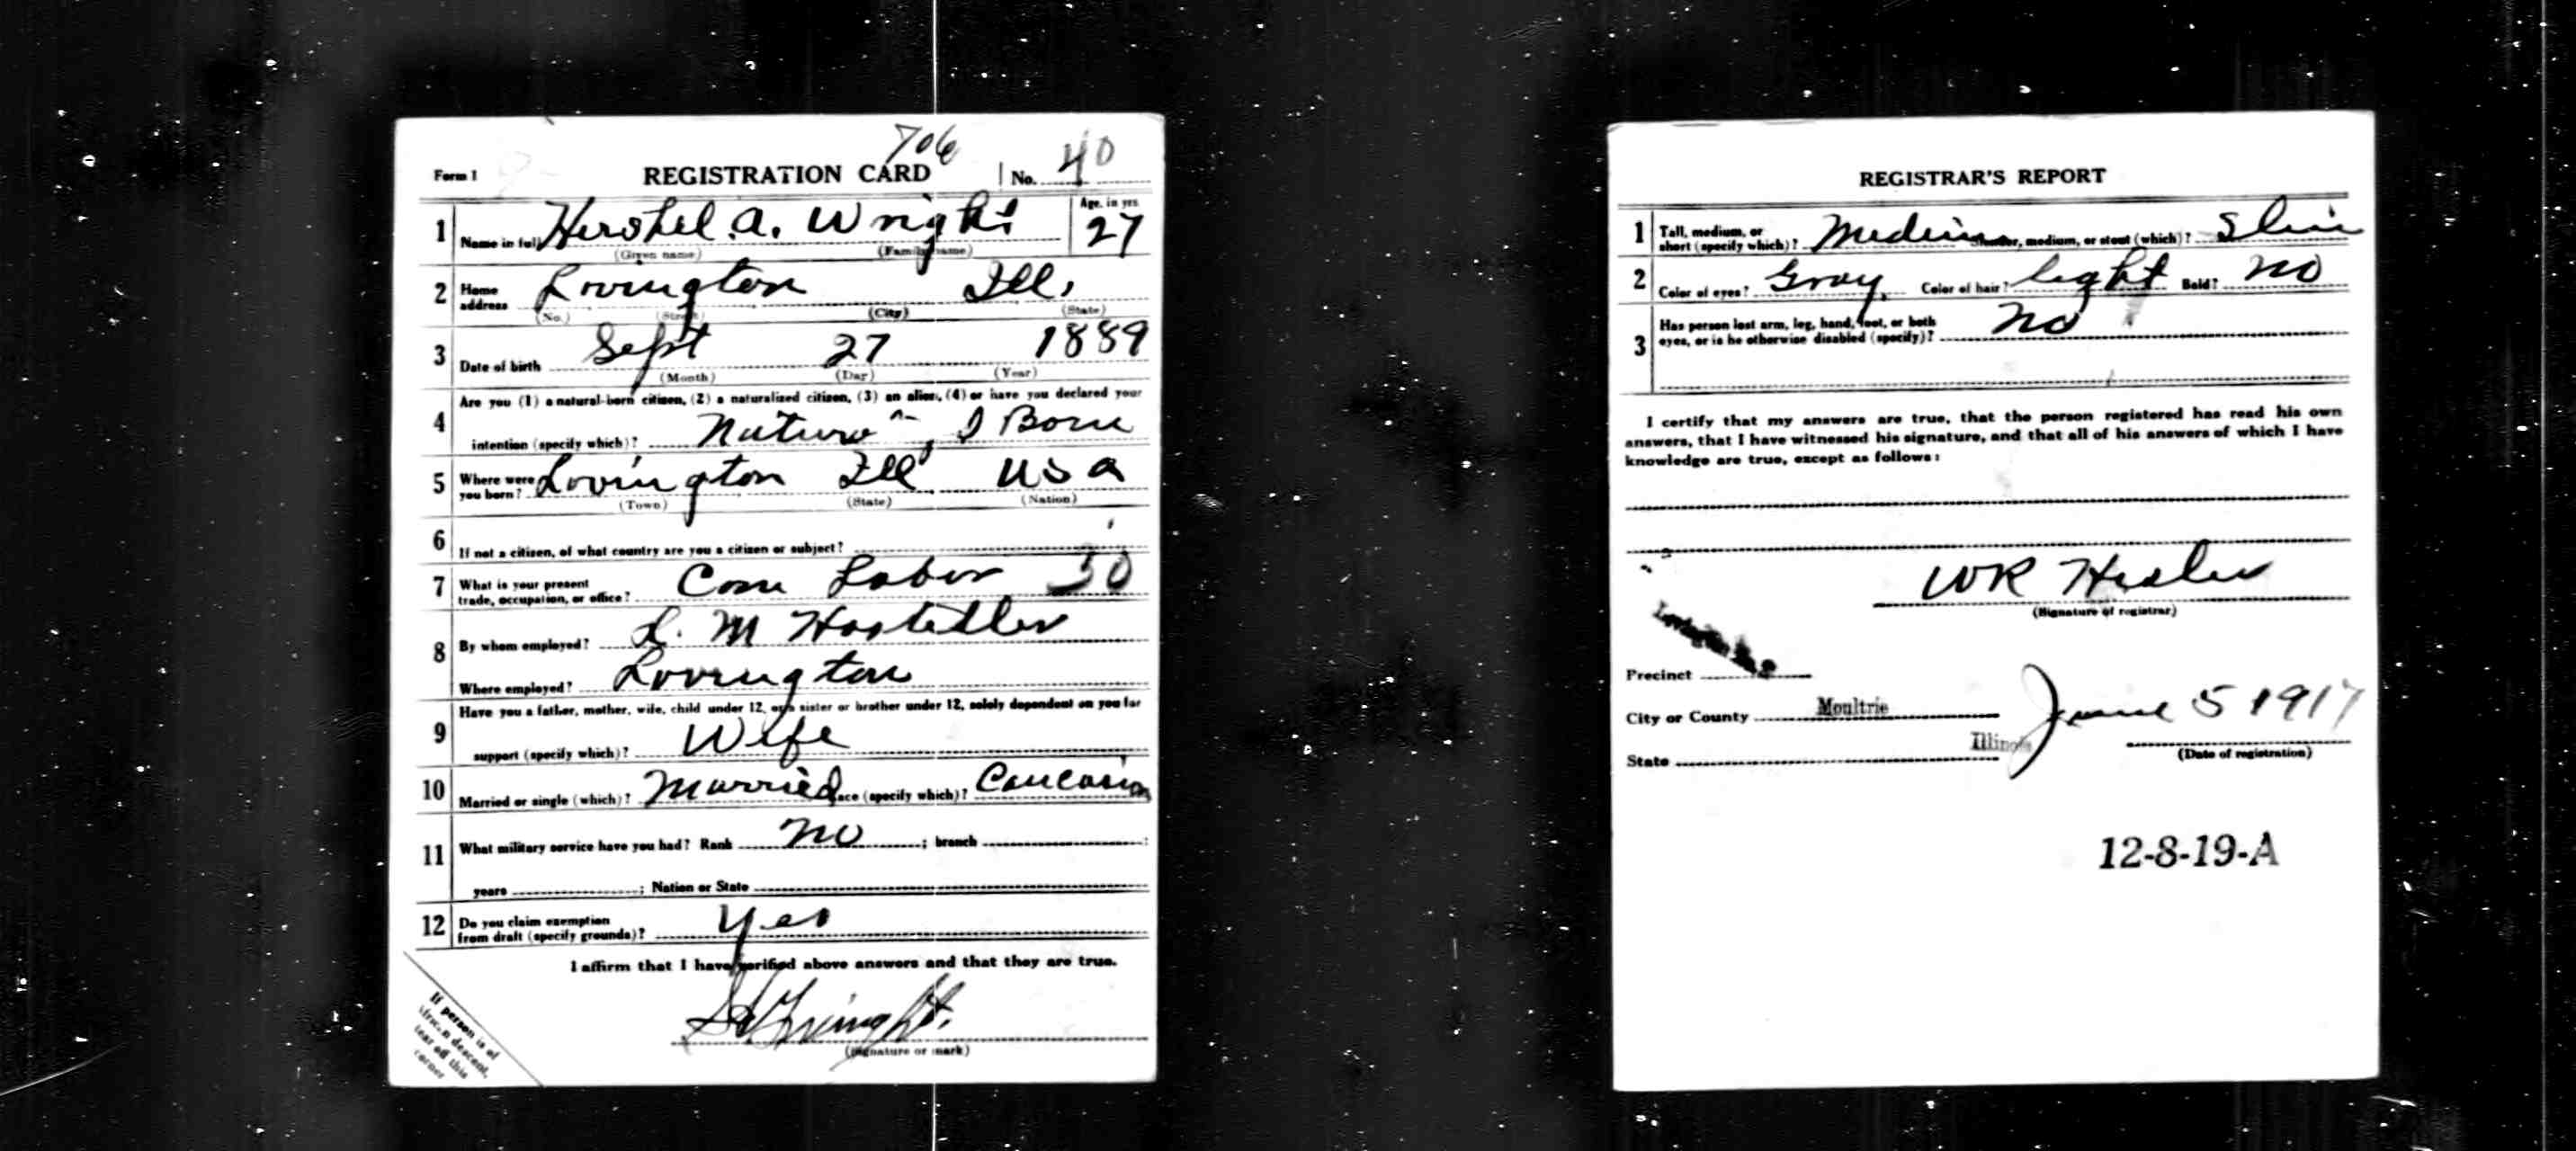 706
Form 1 REGISTRATION CARD No. 40
1 Name in full Hershel. A. Wright Age, in yrs 27
(Given name) (Family name)
2 Home address Lovington Ill.
(No.) (Street) (City) (State)
3 Date of birth Sept 27 1889
(Month) (Day) (Year)
4 Are you (1) a natural-born citizen, (2) a naturalized citizen, (3) an alien, (4) or have you declared your
intention (specify which)? Born
5 Where were you born? Lovington Ill USA
(Town) (State) (Nation)
6 If not a citizen, of what country are you a citizen or subject?
7 What is your present
trade, occupation, or office? Com Labor 30
8 By whom employed? L. M Hostetler
Where employed? Lovington
9 Have you a father, mother, wife, child under 12, or a sister or brother under 12, solely dependent on you for
support (specify which)? Wife
10 Married or single (which)? Married Race (specify which)? Caucasion
11 What military service have you had? Rank No ; branch ;
years ; Nation or State
12 Do you claim exemption
from draft (specify grounds)? Yes
I affirm that I have verified above answers and that they are true.
(Signature or mark)
If person is of
African descent,
tear off this
corner
REGISTRAR'S REPORT
1 Tall, medium, or
short (specify which)? Medium Slender, medium, or stout (which)? Slim
2 Color of eyes? Gray Color of hair? light Bald? No
3 Has person lost arm, leg, hand, foot, or both
eyes, or is he otherwise disabled (specify)? No
I certify that my answers are true, that the person registered has read his own
answers, that I have witnessed his signature, and that all of his answers of which I have
knowledge are true, except as follows:
WR
(Signature of registrar)
Precinct
City or County Moultrie June 5 1917
State Illinois (Date of registration)
12-8-19-A